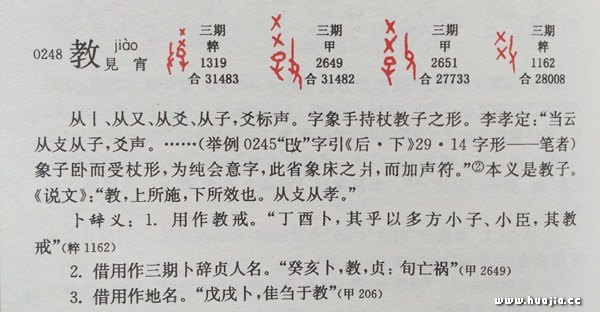 0248 教 jiào 見 宵
三期 粹 1319 合 31483
三期 甲 2649 合 31482
三期 甲 2651 合 27733
粹 1162 合 28008
从丨、从又、从爻、从子,爻标声。字象手持杖教子之形。李孝定:“当云
从攴从子,爻声。……(举例 0245“𢻻”字引《后·下》29·14 字形——笔者)
象子卧而受杖形,为纯会意字,此省象床之爿,而加声符。”②本义是教子。
《说文》:“教,上所施,下所效也。从攴从孝。”
卜辞义:1. 用作教戒。“丁酉卜,其乎以多方小子、小臣,其教
戒”(粹 1162)
2. 借用作三期卜辞贞人名。“癸亥卜,教,贞:旬亡祸”(甲 2649)
3. 借用作地名。“戊戌卜,隹刍于教”(甲 206)
www.huajia.cc